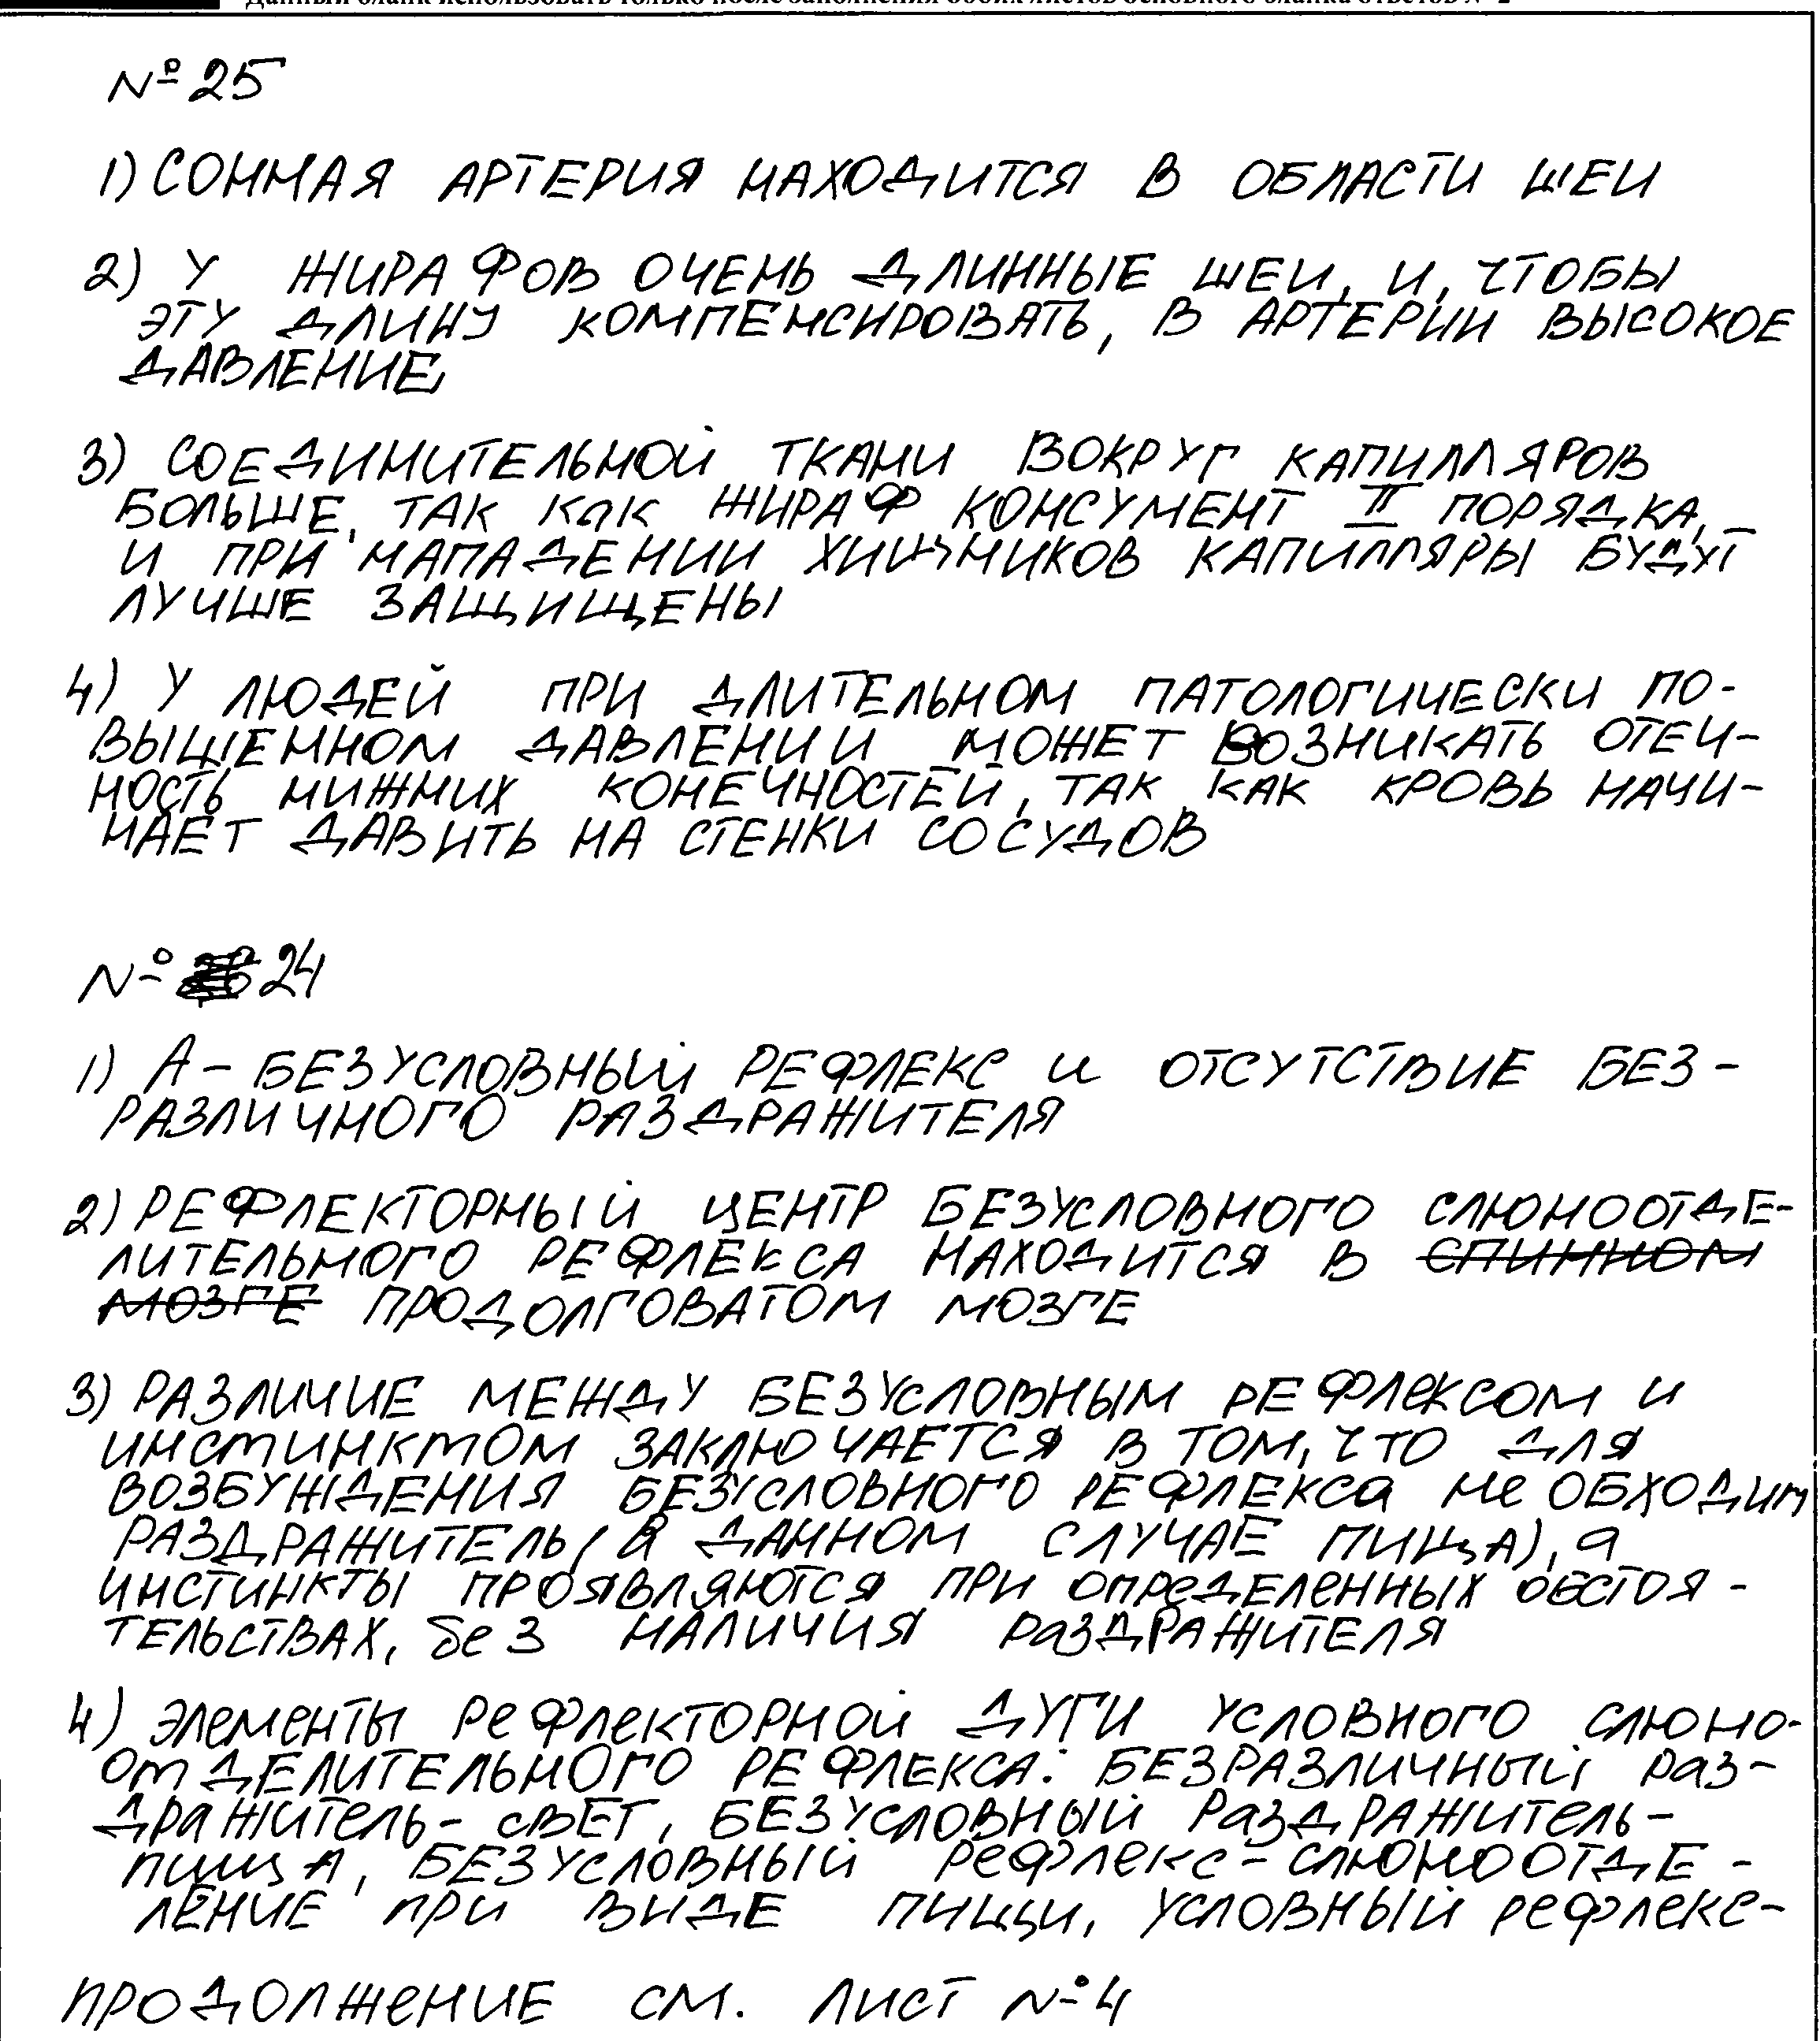 Данный бланк использовать только после заполнения обоих листов основного бланка ответов № 2
№ 25
1) СОННАЯ АРТЕРИЯ НАХОДИТСЯ В ОБЛАСТИ ШЕИ
2) У ЖИРАФОВ ОЧЕНЬ ДЛИННЫЕ ШЕИ, И, ЧТОБЫ
ЭТУ ДЛИНУ КОМПЕНСИРОВАТЬ, В АРТЕРИИ ВЫСОКОЕ
ДАВЛЕНИЕ,
3) СОЕДИНИТЕЛЬНОЙ ТКАНИ ВОКРУГ КАПИЛЛЯРОВ
БОЛЬШЕ, ТАК КАК ЖИРАФ КОНСУМЕНТ II ПОРЯДКА,
И ПРИ НАПАДЕНИИ ХИЩНИКОВ КАПИЛЛЯРЫ БУДУТ
ЛУЧШЕ ЗАЩИЩЕНЫ
4) У ЛЮДЕЙ ПРИ ДЛИТЕЛЬНОМ ПАТОЛОГИЧЕСКИ ПО-
ВЫШЕННОМ ДАВЛЕНИИ МОЖЕТ ВОЗНИКАТЬ ОТЕЧ-
НОСТЬ НИЖНИХ КОНЕЧНОСТЕЙ, ТАК КАК КРОВЬ НАЧИ-
НАЕТ ДАВИТЬ НА СТЕНКИ СОСУДОВ
№ 24
1) А - БЕЗУСЛОВНЫЙ РЕФЛЕКС И ОТСУТСТВИЕ БЕЗ-
РАЗЛИЧНОГО РАЗДРАЖИТЕЛЯ
2) РЕФЛЕКТОРНЫЙ ЦЕНТР БЕЗУСЛОВНОГО СЛЮНООТДЕ-
ЛИТЕЛЬНОГО РЕФЛЕКСА НАХОДИТСЯ В СПИННОМ
МОЗГЕ ПРОДОЛГОВАТОМ МОЗГЕ
3) РАЗЛИЧИЕ МЕЖДУ БЕЗУСЛОВНЫМ РЕФЛЕКСОМ И
ИНСТИНКТОМ ЗАКЛЮЧАЕТСЯ В ТОМ, ЧТО ДЛЯ
ВОЗБУЖДЕНИЯ БЕЗУСЛОВНОГО РЕФЛЕКСА НЕОБХОДИМ
РАЗДРАЖИТЕЛЬ (В ДАННОМ СЛУЧАЕ ПИЩА), а
ИНСТИНКТЫ ПРОЯВЛЯЮТСЯ ПРИ ОПРЕДЕЛЕННЫХ ОБСТОЯ-
ТЕЛЬСТВАХ, без НАЛИЧИЯ РАЗДРАЖИТЕЛЯ
4) ЭЛЕМЕНТЫ РЕФЛЕКТОРНОЙ ДУГИ УСЛОВНОГО СЛЮНО-
ОТДЕЛИТЕЛЬНОГО РЕФЛЕКСА: БЕЗРАЗЛИЧНЫЙ РАЗ-
ДРАЖИТЕЛЬ - СВЕТ, БЕЗУСЛОВНЫЙ РАЗДРАЖИТЕЛЬ -
ПИЩА, БЕЗУСЛОВНЫЙ РЕФЛЕКС - СЛЮНООТДЕ-
ЛЕНИЕ ПРИ ВИДЕ ПИЩИ, УСЛОВНЫЙ РЕФЛЕКС-
ПРОДОЛЖЕНИЕ СМ. ЛИСТ № 4